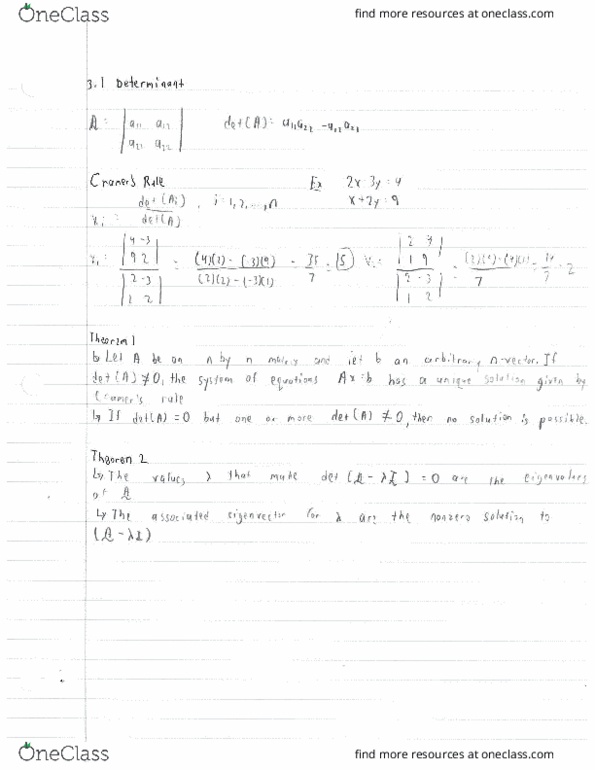 OneClass
find more resources at oneclass.com
3.1 Determinant
A: |a11 a12| det(A): a11a22 - a12a21
|a21 a22|
Cramer's Rule Ex 2x-3y=4
xi = det(Ai)/det(A), i=1,2,...,n x+2y=9
x1: |4 -3| = (4)(2) - (-3)(9) = 35 = 5 |2 4| = (2)(9)-(4)(1) = 14 = 2
|9 2| (2)(2) - (-3)(1) 7 |1 9| 7 7
|2 -3| |2 -3|
|1 2| |1 2|
Theorem 1
↳ Let A be an n by n matrix and let b an arbitrary n-vector. If
det(A) ≠0, the system of equations Ax=b has a unique solution given by
Cramer's rule
↳ If det(A)=0 but one or more det(A) ≠0, then no solution is possible.
Theorem 2
↳ The values λ that make det (A - λI) = 0 are the eigenvalues
of A
↳ The associated eigenvector for λ are the nonzero solution to
(A - λI)
OneClass
find more resources at oneclass.com